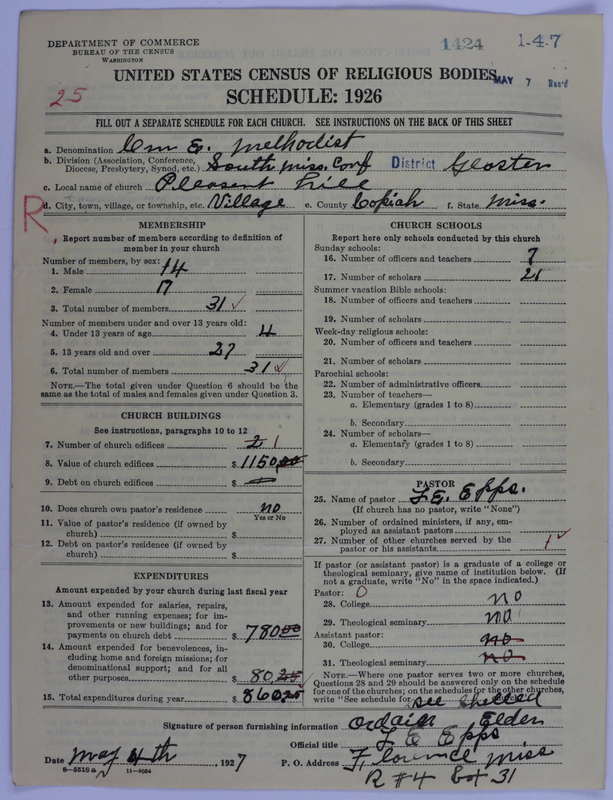 DEPARTMENT OF COMMERCE
BUREAU OF THE CENSUS
WASHINGTON
1424
1-4-7
UNITED STATES CENSUS OF RELIGIOUS BODIES
MAY 7 Rec'd
25
SCHEDULE: 1926
FILL OUT A SEPARATE SCHEDULE FOR EACH CHURCH. SEE INSTRUCTIONS ON THE BACK OF THIS SHEET
a. Denomination Cm E. Methodist
b. Division (Association, Conference, Diocese, Presbytery, Synod, etc.) South Miss. Conf District Gloster
c. Local name of church Pleasent hill
d. City, town, village, or township, etc. Village e. County Copiah f. State Miss.
R
MEMBERSHIP
Report number of members according to definition of
member in your church
Number of members, by sex:
1. Male 14
2. Female 17
3. Total number of members 31 ✓
Number of members under and over 13 years old:
4. Under 13 years of age 4
5. 13 years old and over 27
6. Total number of members 31 ✓
NOTE.—The total given under Question 6 should be the
same as the total of males and females given under Question 3.
CHURCH BUILDINGS
See instructions, paragraphs 10 to 12
7. Number of church edifices 1
8. Value of church edifices $ 1150.00
9. Debt on church edifices $
10. Does church own pastor's residence no
Yes or No
11. Value of pastor's residence (if owned by
church) $
12. Debt on pastor's residence (if owned by
church) $
EXPENDITURES
Amount expended by your church during last fiscal year
13. Amount expended for salaries, repairs,
and other running expenses; for im-
provements or new buildings; and for
payments on church debt $ 780.00
14. Amount expended for benevolences, in-
cluding home and foreign missions; for
denominational support; and for all
other purposes $ 80.25
15. Total expenditures during year $ 860.25
CHURCH SCHOOLS
Report here only schools conducted by this church
Sunday schools:
16. Number of officers and teachers 7
17. Number of scholars 25
Summer vacation Bible schools:
18. Number of officers and teachers
19. Number of scholars
Week-day religious schools:
20. Number of officers and teachers
21. Number of scholars
Parochial schools:
22. Number of administrative officers
23. Number of teachers—
a. Elementary (grades 1 to 8)
b. Secondary
24. Number of scholars—
a. Elementary (grades 1 to 8)
b. Secondary
PASTOR
25. Name of pastor L E. Epps.
(If church has no pastor, write "None")
26. Number of ordained ministers, if any, em-
ployed as assistant pastors
27. Number of other churches served by the
pastor or his assistants 1 ✓
If pastor (or assistant pastor) is a graduate of a college or
theological seminary, give name of institution below. (If
not a graduate, write "No" in the space indicated.)
Pastor: 0
28. College no
29. Theological seminary no
Assistant pastor:
30. College no
31. Theological seminary no
NOTE.—Where one pastor serves two or more churches,
Questions 28 and 29 should be answered only on the schedule
for one of the churches; on the schedules for the other churches,
write "See schedule for
Signature of person furnishing information ordain Elder
Official title L E Epps
Date May 4th, 1927 P. O. Address Florence Miss
R #4 Box 31
8-5518 a 11-9054